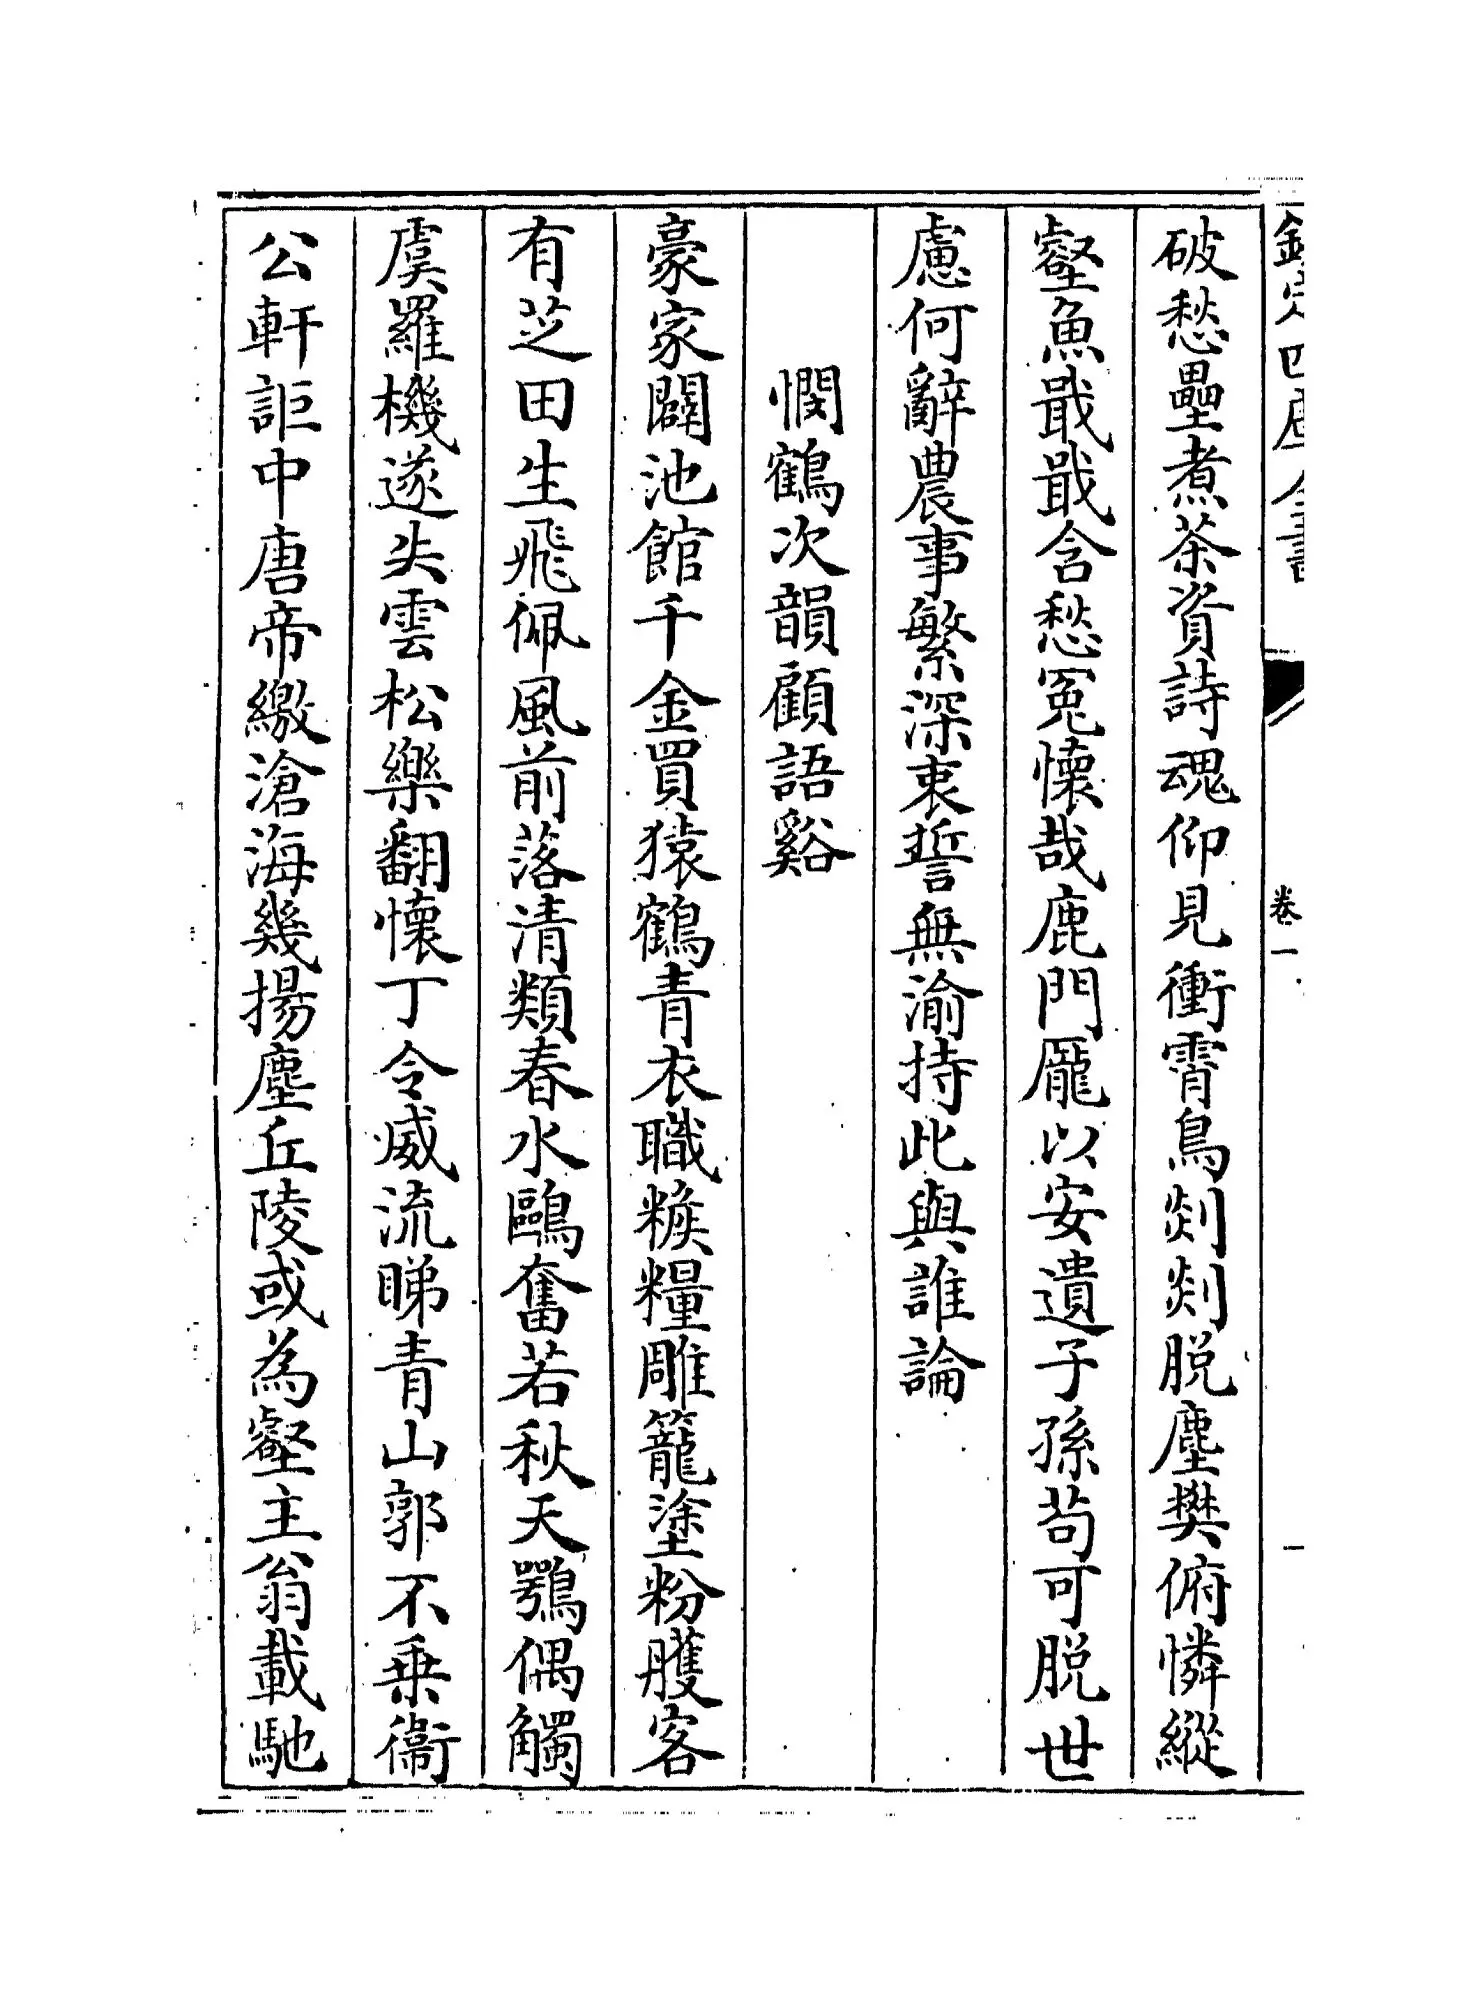 欽定四庫全書
卷一
破愁壘煮茶資詩魂仰見衝霄鳥剡剡脱塵樊俯憐縱
壑魚戢戢含愁冤懷哉鹿門龎以安遺子孫茍可脱世
慮何辭農事繁深衷誓無渝持此與誰論
憫鶴次韻顧語谿
豪家闢池館千金買猿鶴青衣職糇糧雕籠塗粉雘客
有芝田生飛佩風前落清類春水鷗奮若秋天鶚偶觸
虞羅機遂失雲松樂翻懷丁令威流睇青山郭不乗衞
公軒詎中唐帝繳滄海幾揚塵丘陵或為壑主翁載馳